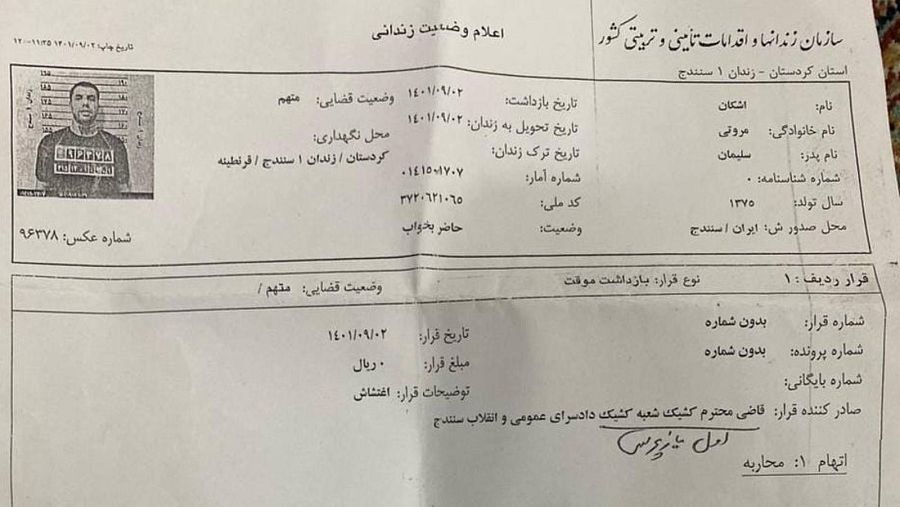 سازمان زندانها و اقدامات تأمینی و تربیتی کشور
اعلام وضعیت زندانی
تاریخ چاپ: ۱۴۰۱/۰۹/۰۲
استان کردستان - زندان ۱ سنندج
نام: اشکان
نام خانوادگی: مروتی
نام پدر: سلیمان
شماره شناسنامه: ۰
سال تولد: ۱۳۷۵
محل صدور ش: ایران / سنندج
تاریخ بازداشت: ۱۴۰۱/۰۹/۰۲
تاریخ تحویل به زندان: ۱۴۰۱/۰۹/۰۲
تاریخ ترک زندان:
شماره آمار: ۰۱۴۱۵۰۱۷۰۷
کد ملی: ۳۷۲۰۶۲۱۰۶۵
وضعیت: حاضر بخواب
وضعیت قضایی: متهم
محل نگهداری:
کردستان / زندان ۱ سنندج / قرنطینه
شماره عکس: ۹۶۳۷۸
قرار ردیف : ۱ نوع قرار: بازداشت موقت وضعیت قضایی: متهم /
شماره قرار: بدون شماره
شماره پرونده: بدون شماره
شماره بایگانی:
تاریخ قرار: ۱۴۰۱/۰۹/۰۲
مبلغ قرار: ۰ ریال
توضیحات قرار: اغتشاش
صادر کننده قرار: قاضی محترم کشیک شعبه کشیک دادسرای عمومی و انقلاب سنندج
اول بازپرسی
اتهام ۱: محاربه